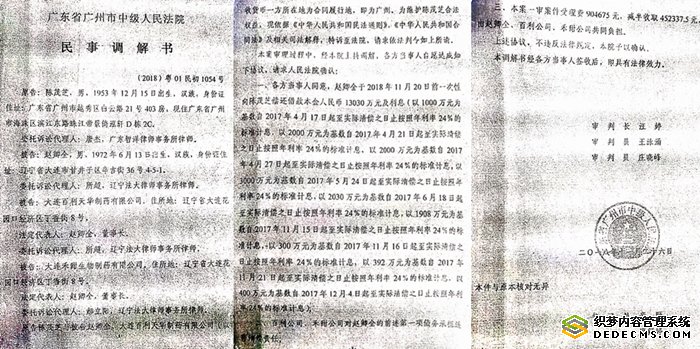 广东省广州市中级人民法院
民事调解书
(2018)粤01民初1054号
原告：陈茂芝，男，1953年12月15日出生，汉族，身份证
住址：广东省广州市越秀区白云路21号403房，现住广东省广州
市海珠区滨江东路
委托诉讼代理人：唐杰，广东智洋律师事务所律师。
被告：赵卿全，男，1972年6月13日出生，汉族，身份证住
址：辽宁省大连市甘井子区华南街36号4-3-1。
委托诉讼代理人：所飓，辽宁法大律师事务所律师。
被告：大连百利天华制药有限公司，住所地：辽宁省大连花
园口经济区
法定代表人：赵卿全，董事长。
委托诉讼代理人：所飓，辽宁法大律师事务所律师。
有限公司，住所地：辽宁省大连花
法定代表人：赵卿全，董事长。
辽宁法大律师事务所律师。
赵卿全、大连百利天华制药有限公司
收货币一方所在地为合同履行地，即为广州。为维护陈茂芝合法
权益，现依据《中华人民共和国民法通则》、《中华人民共和国合
同法》及相关司法解释，特诉至法院，请求依法判令如上所请。
本案审理过程中，经本院主持调解，各方当事人自愿达成如
下协议，请求人民法院确认：
一、各方当事人同意，赵卿全于2018年11月20日前一次性
向陈茂芝偿还借款本金人民币13030万元及利息（以1000万元
为基数自2017年4月17日起至实际清偿之日止按照年利率24%的
标准计息，以2000万元为基数自2017年4月21日起至实际清偿
之日止按照年利率24%的标准计息，以2000万元为基数自2017
年4月27日起至实际清偿之日止按照年利率24%的标准计息，以
3000万元为基数自2017年5月24日起至实际清偿之日止按照年
利率24%的标准计息，以2030万元为基数自2017年6月18日起
至实际清偿之日止按照年利率24%的标准计息，以1908万元为基
数自2017年11月15日起至实际清偿之日止按照年利率24%的标准
计息，以300万元为基数自2017年11月16日起至实际清偿之
日止按照年利率24%的标准计息，以392万元为基数自2017年
11月21日起至实际清偿之日止按照年利率24%的标准计息，以
400万元为基数自2017年12月4日起至实际清偿之日止按照年利
率24%的标准计息）；
公司对赵卿全的前述第一项债务承担连
带清偿责任。
二、本案一审案件受理费904675元，减半收取452337.5元
由赵卿全、百利公司、公司共同负担。
上述协议，不违反法律规定，本院予以确认。
本调解书经各方当事人签收后，即具有法律效力。
审判长 汪婷
审判员
审判员 庄晓峰
广州市中级人民法院
二〇一八年 月二十六日
本件与原本核对无异
织梦内容管理系统
DEDECMS.COM